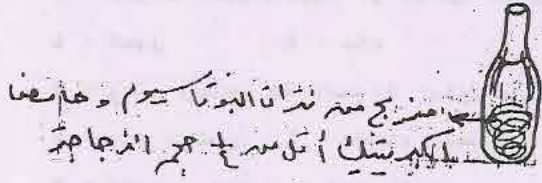 مزيج من نترات البوتاسيوم وحامض
الكبريتيك أقل من ¼ حجم الزجاجة